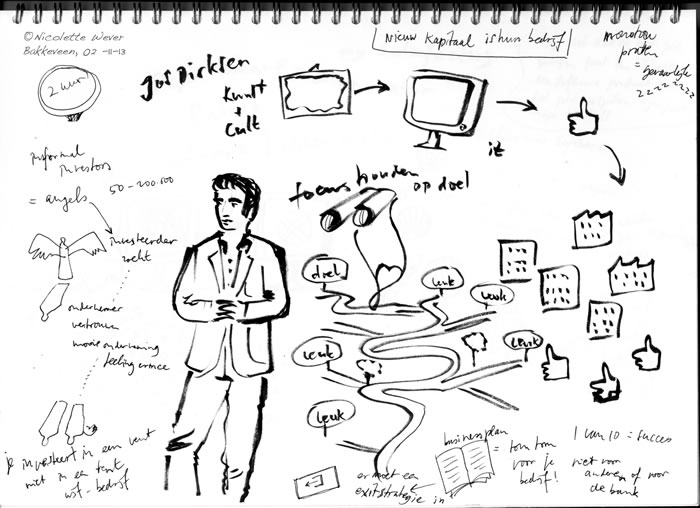 ©Nicolette Wever
Bakkeveen, 02-11-13
Nieuw Kapitaal is hun bedrijf
monoton
praten
= gevaarlijk
zzzzzzz
2 uur!
Jos Dirksen
Kunst
+
Cult
it
informal
investors
= angels
50-200.000
investeerder
zoekt
ondernemer
vertrouwen
mooie onderneming
feeling ermee
focus houden
op doel
doel
leuk
leuk
leuk
leuk
leuk
je investeert in een vent
niet in een tent
wf - bedrijf
er moet een
exitstrategie in
businessplan
= tom tom
voor je
bedrijf!
1 van 10 = succes
niet voor
anderen of voor
de bank